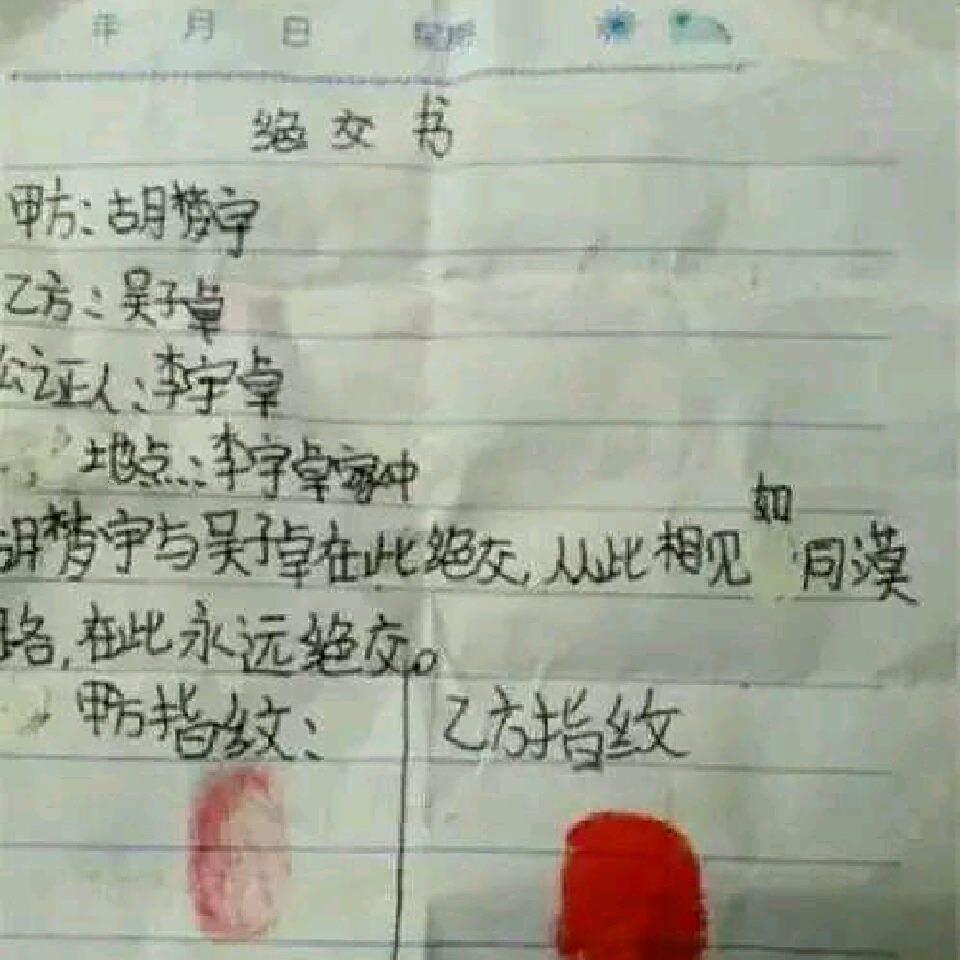 年 月 日 星期
绝交书
甲方:胡梦宇
乙方:吴子卓
公证人:李宇卓
地点:李宇卓家中
胡梦宇与吴子卓在此绝交,从此相见如同漠
路,在此永远绝交。
甲方指纹: 乙方指纹